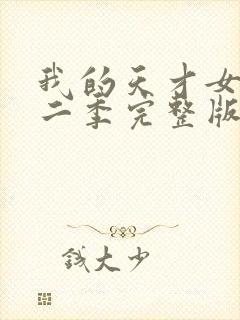 我的天才女
二季完整版
钱大少